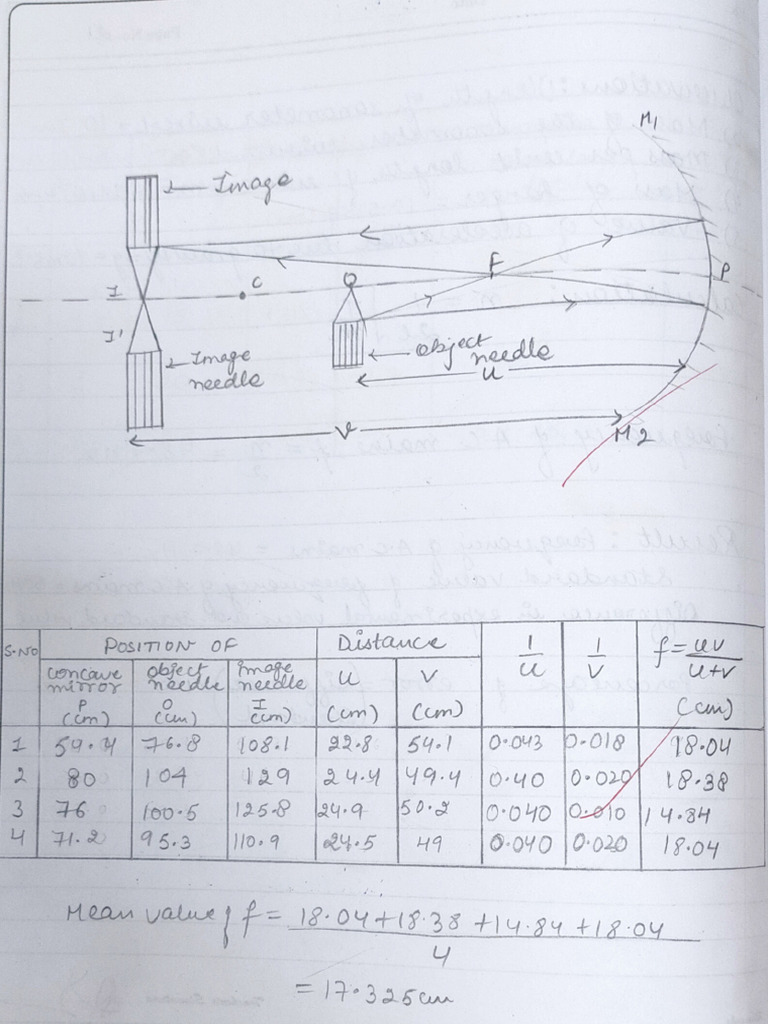 M1
Image
F
P
I
C
O
I'
Image
needle
object
needle
u
v
M2
S.NO
POSITION OF
Distance
1/u
1/v
f = uv/u+v
concave mirror P (cm)
object needle O (cm)
image needle I (cm)
u (cm)
v (cm)
(cm)
1 59.4 76.8 108.1 22.8 54.1 0.043 0.018 18.04
2 80 104 129 24.4 49.4 0.40 0.020 18.38
3 76 100.5 125.8 24.9 50.2 0.040 0.010 14.84
4 71.2 95.3 110.9 24.5 49 0.040 0.020 18.04
Mean value of f = 18.04+18.38+14.84+18.04
4
= 17.325cm